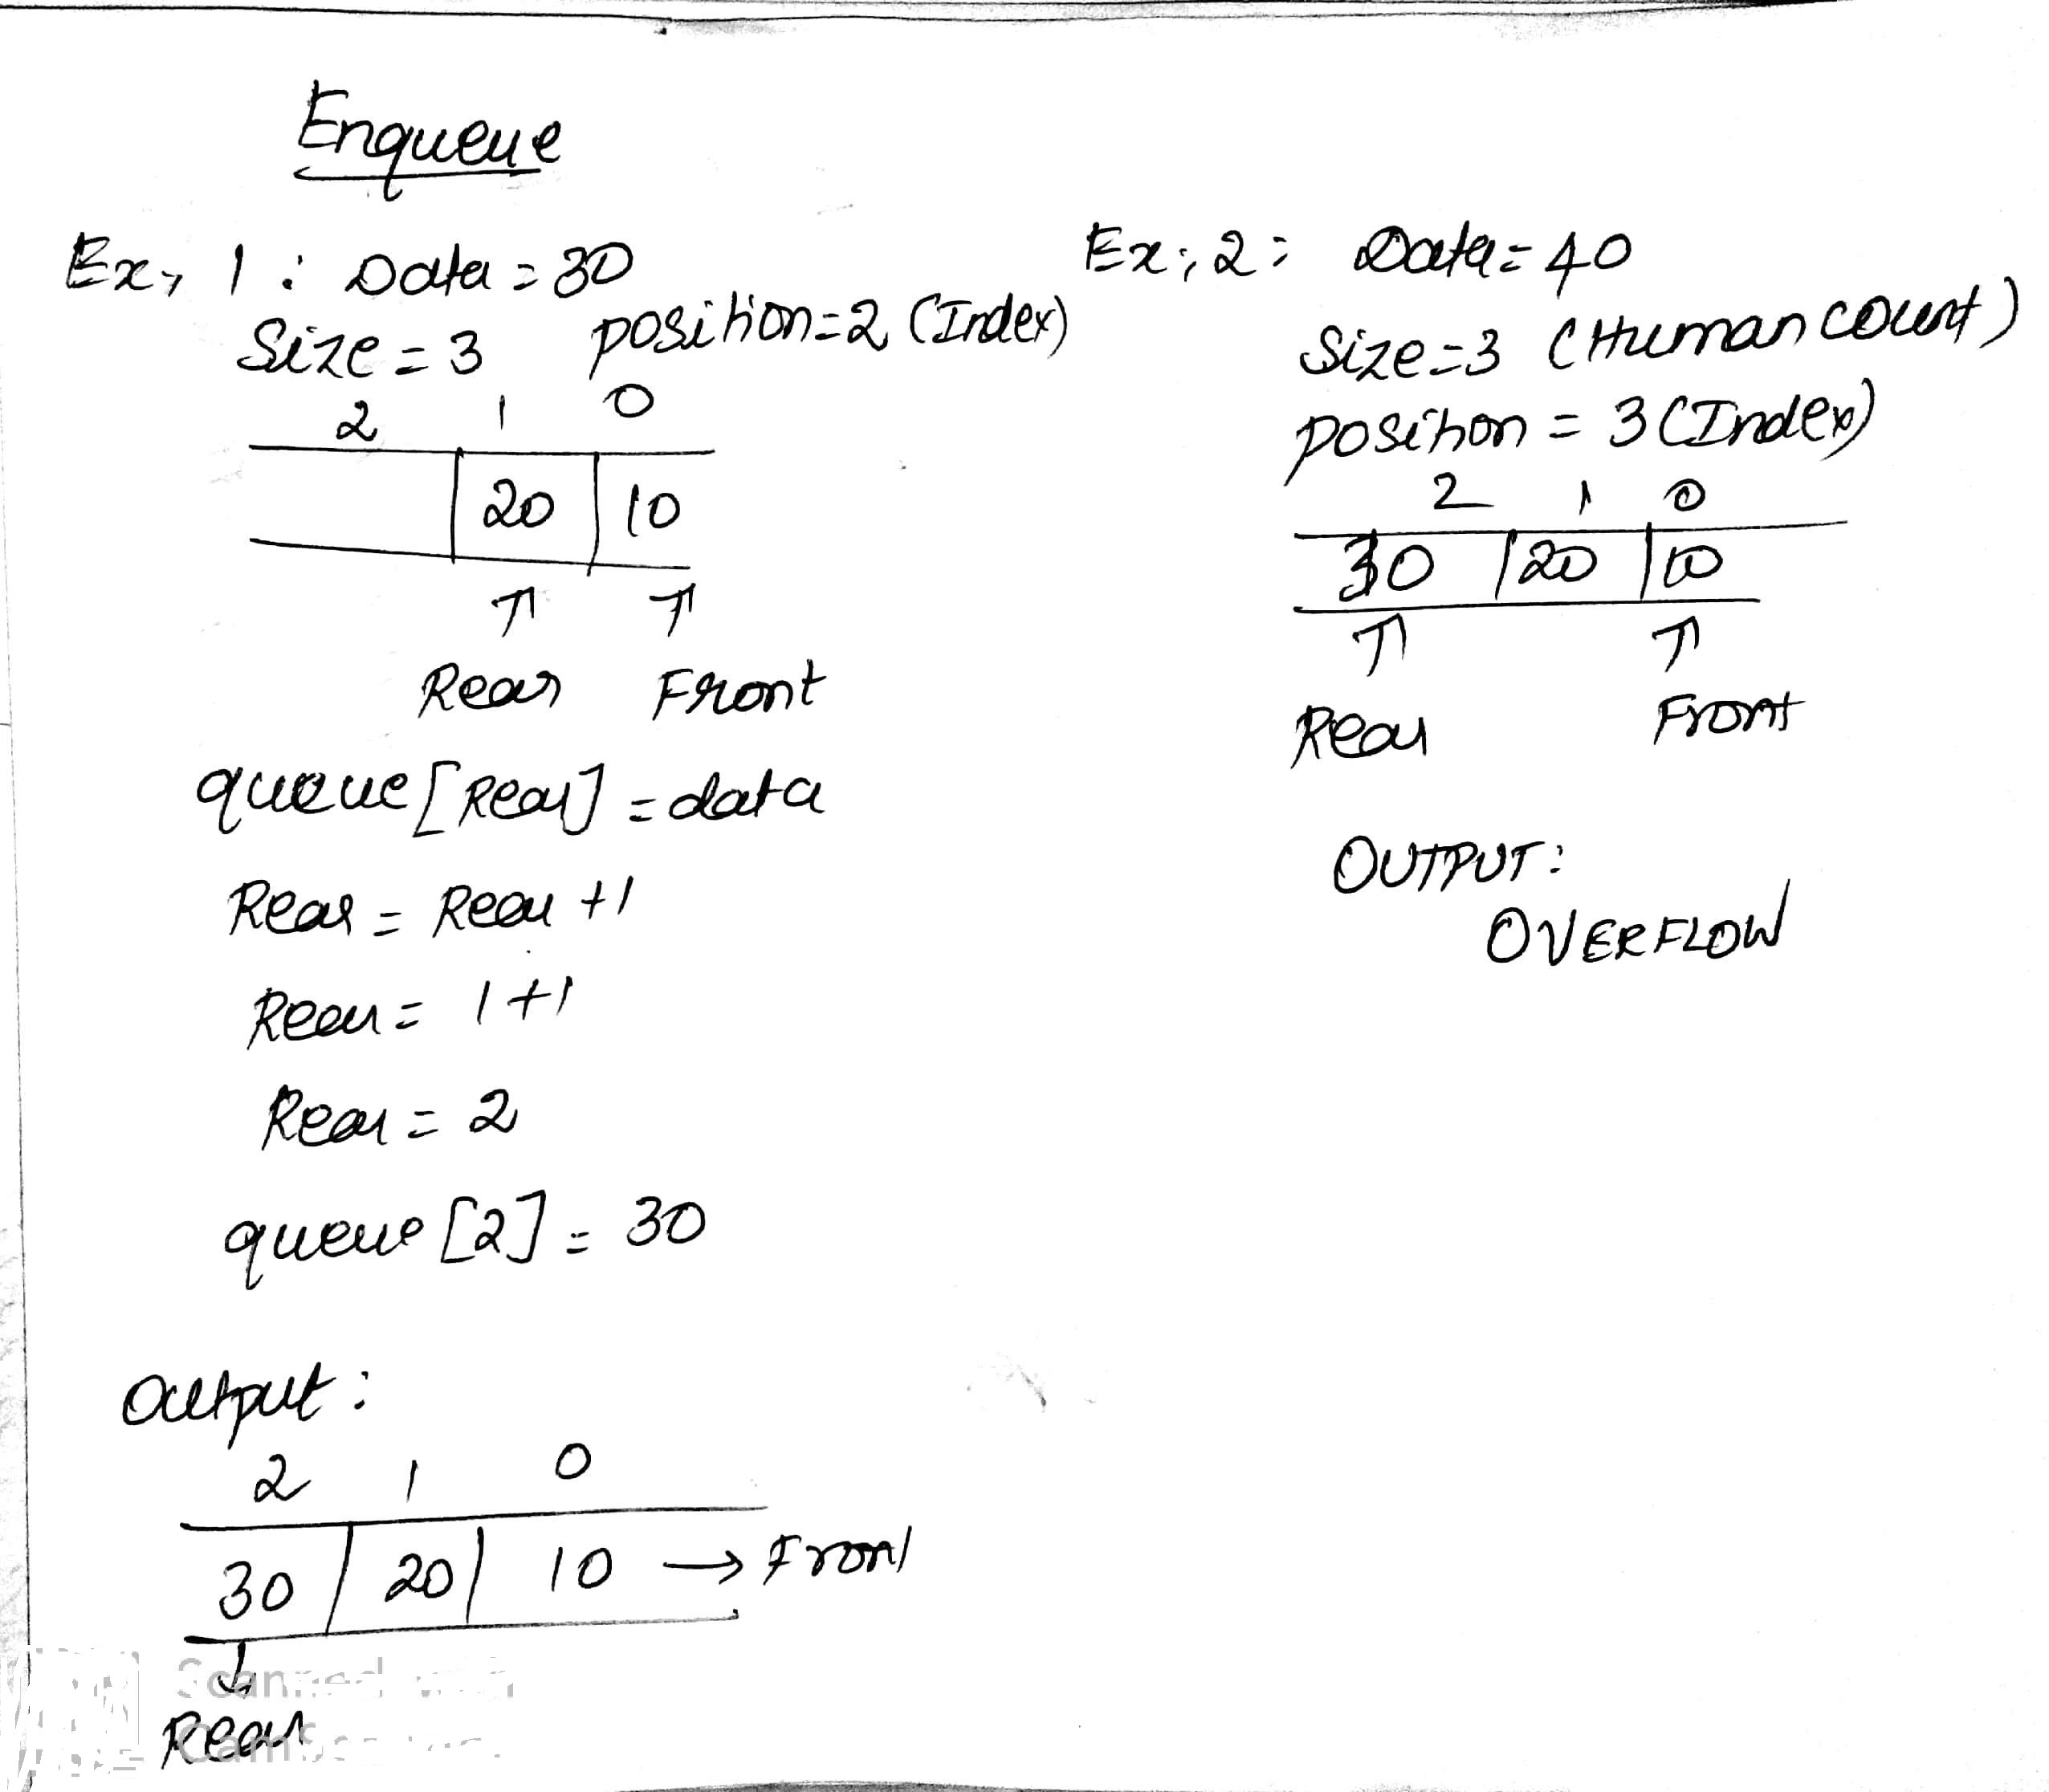 Enqueue
Ex, 1: Data = 30
Size = 3 position=2 (Index)
2 1 0
20 10
↑ ↑
Rear Front
queue[Rear] = data
Rear = Rear +1
Rear = 1+1
Rear = 2
queue [2] = 30
Output:
2 1 0
30 20 10 → Front
↓
Rear
Ex; 2: Data = 40
Size=3 (Human count)
position = 3 (Index)
2 1 0
30 20 10
↑ ↑
Rear Front
OUTPUT:
OVERFLOW